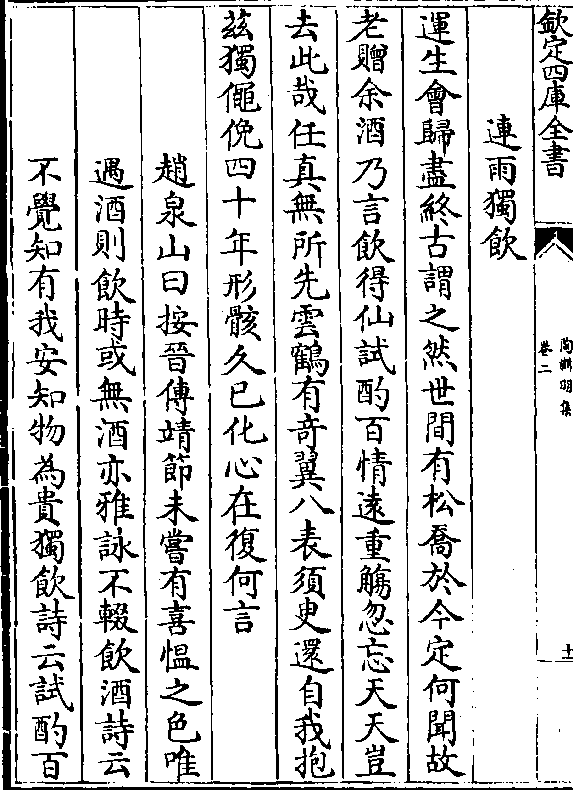 欽定四庫全書
陶淵明集
卷二
十
連雨獨飲
運生會歸盡終古謂之然世間有松喬於今定何聞故
老贈余酒乃言飲得仙試酌百情遠重觴忽忘天天豈
去此哉任真無所先雲鶴有奇翼八表須臾還自我抱
茲獨僶俛四十年形骸久已化心在復何言
趙泉山曰按晉傳靖節未嘗有喜慍之色唯
遇酒則飲時或無酒亦雅詠不輟飲酒詩云
不覺知有我安知物為貴獨飲詩云試酌百